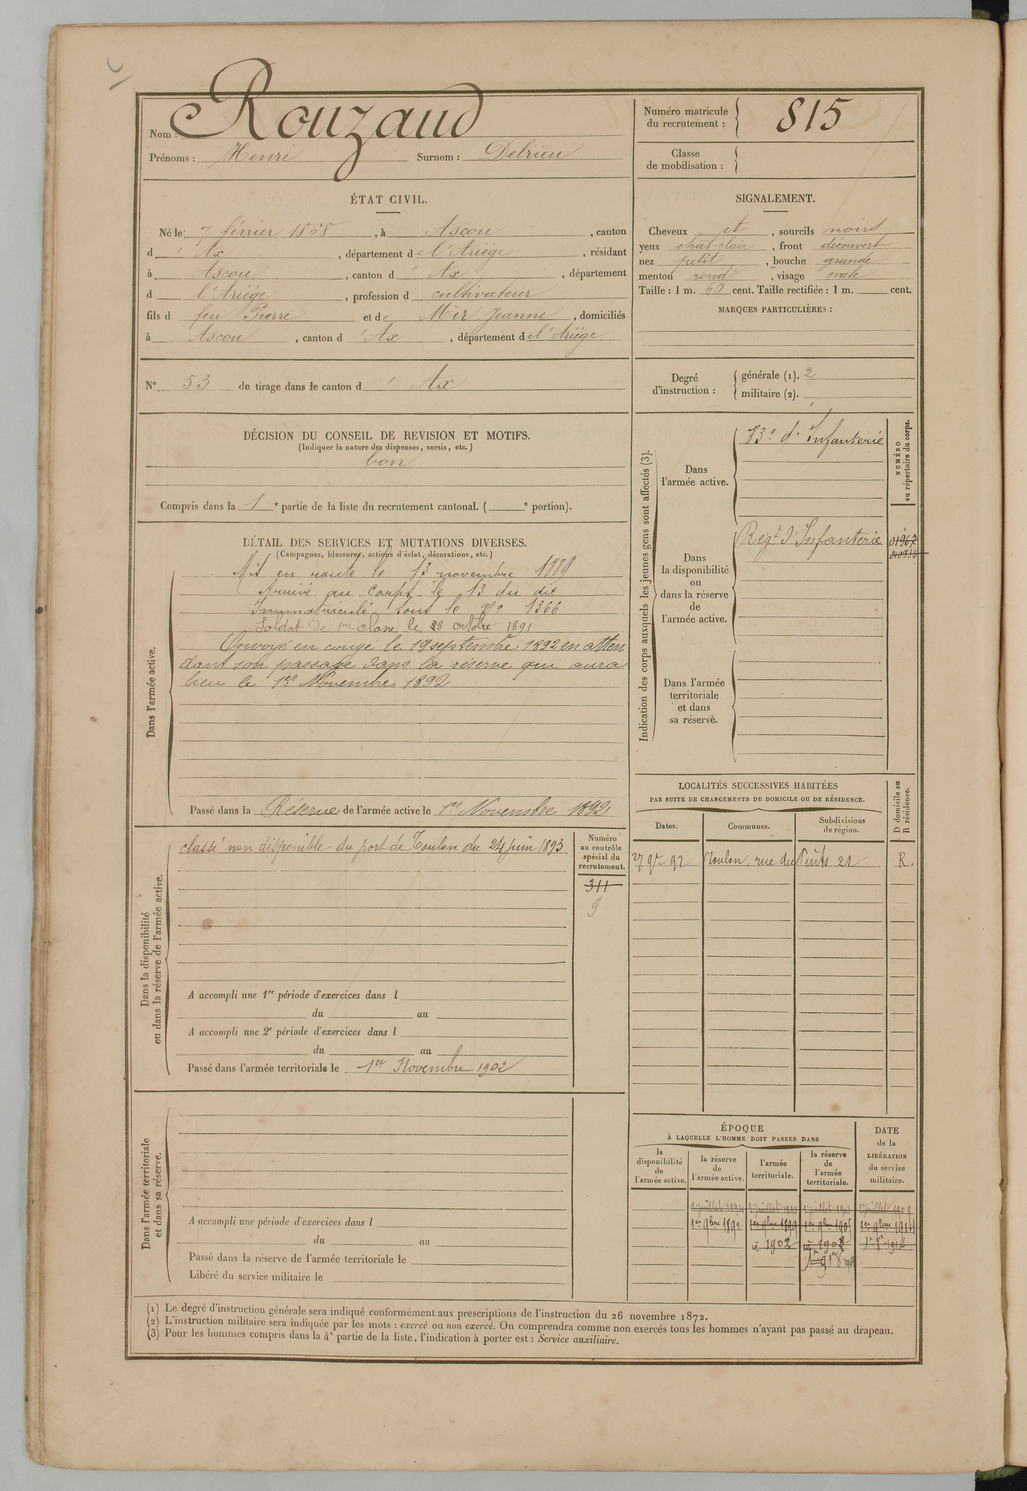 Nom : Rouzaud
Prénoms : Henri Surnom : Delrieu
Numéro matricule du recrutement : 815
Classe de mobilisation :
ÉTAT CIVIL.
Né le 7 février 1868, à Ascou, canton
d' Ax, département de l'Ariège, résidant
à Ascou, canton d' Ax, département
d l'Ariège, profession d cultivateur
fils d feu Pierre et de Mir Jeanne, domiciliés
à Ascou, canton d' Ax, département de l'Ariège
SIGNALEMENT.
Cheveux et, sourcils noirs
yeux chat. clair, front découvert
nez petit, bouche grande
menton rond, visage ovale
Taille : 1 m. 62 cent. Taille rectifiée : 1 m. cent.
MARQUES PARTICULIÈRES :
N° 53 de tirage dans le canton d' Ax
Degré d'instruction : générale (1). 2
militaire (2).
DÉCISION DU CONSEIL DE REVISION ET MOTIFS.
(Indiquer la nature des dispenses, sursis, etc.)
bon
Compris dans la 1e partie de la liste du recrutement cantonal. ( e portion).
DÉTAIL DES SERVICES ET MUTATIONS DIVERSES.
(Campagnes, blessures, actions d'éclat, décorations, etc.)
Dans l'armée active.
Mis en route le 13 novembre 1889
Arrivé au corps le 13 du dit
Immatriculé sous le N° 1366
Soldat de 1re classe le 28 octobre 1891
Envoyé en congé le 19 septembre 1892 en atten
dant son passage dans la réserve qui aura
lieu le 1er Novembre 1892
Passé dans la Réserve de l'armée active le 1er Novembre 1892
Indication des corps auxquels les jeunes gens sont affectés (3).
NUMÉRO au répertoire du corps.
Dans l'armée active.
d'Infanterie
Dans la disponibilité ou dans la réserve de l'armée active.
Régt d'Infanterie
Dans l'armée territoriale et dans sa réserve.
LOCALITÉS SUCCESSIVES HABITÉES
PAR SUITE DE CHANGEMENTS DE DOMICILE OU DE RÉSIDENCE.
D domicile ou R résidence.
Dates. Communes. Subdivisions de région.
27 9re 92 Toulon, rue du Puits 22 R.
Dans la disponibilité ou dans la réserve de l'armée active.
classé non disponible du port de Toulon du 24 juin 1893
Numéro au contrôle spécial du recrutement.
311
9
A accompli une 1re période d'exercices dans l
du au
A accompli une 2e période d'exercices dans l
du au
Passé dans l'armée territoriale le 1er Novembre 1902
Dans l'armée territoriale et dans sa réserve.
A accompli une période d'exercices dans l
du au
Passé dans la réserve de l'armée territoriale le
Libéré du service militaire le
ÉPOQUE
À LAQUELLE L'HOMME DOIT PASSER DANS
DATE de la LIBÉRATION du service militaire.
la disponibilité de l'armée active.
la réserve de l'armée active.
l'armée territoriale.
la réserve de l'armée territoriale.
1er 9bre 1892
1902
(1) Le degré d'instruction générale sera indiqué conformément aux prescriptions de l'instruction du 26 novembre 1872.
(2) L'instruction militaire sera indiquée par les mots : exercé ou non exercé. On comprendra comme non exercés tous les hommes n'ayant pas passé au drapeau.
(3) Pour les hommes compris dans la 4e partie de la liste, l'indication à porter est : Service auxiliaire.